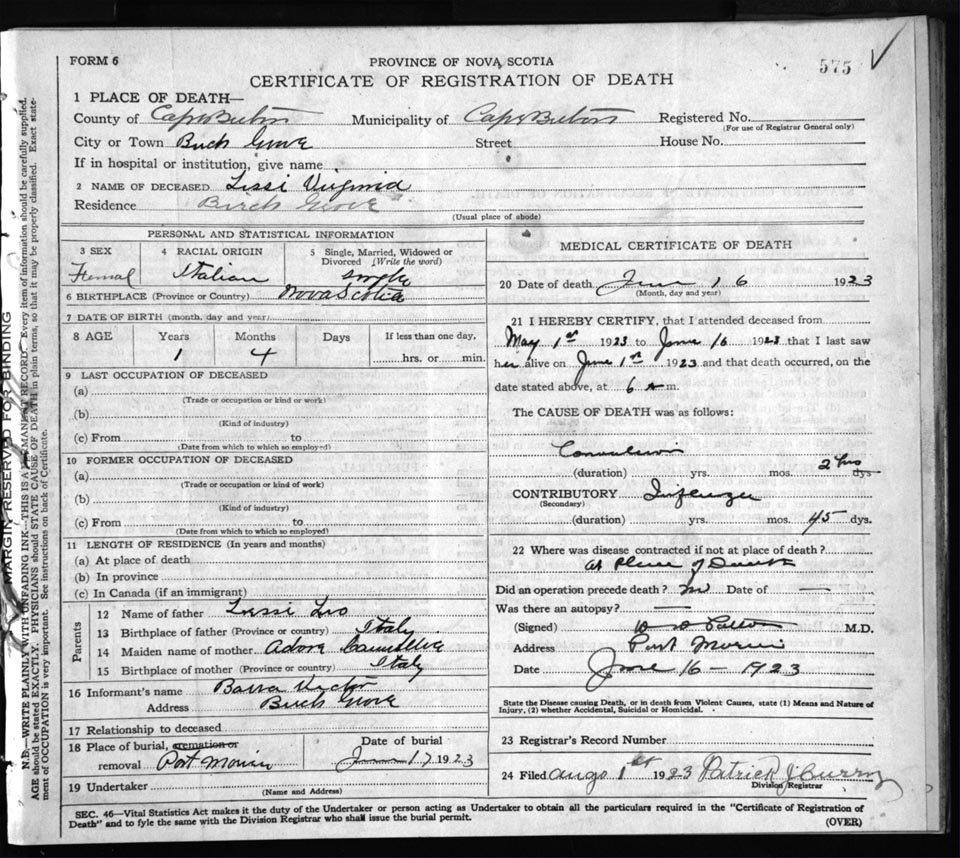 FORM 6
PROVINCE OF NOVA SCOTIA
575
CERTIFICATE OF REGISTRATION OF DEATH
1 PLACE OF DEATH—
County of Cape Breton Municipality of Cape Breton Registered No.
(For use of Registrar General only)
City or Town Birch Grove Street House No.
If in hospital or institution, give name
2 NAME OF DECEASED Lissi Virginia
Residence Birch Grove
(Usual place of abode)
PERSONAL AND STATISTICAL INFORMATION
3 SEX 4 RACIAL ORIGIN 5 Single, Married, Widowed or Divorced (Write the word)
Femal Italian single
6 BIRTHPLACE (Province or Country) Nova Scotia
7 DATE OF BIRTH (month, day and year)
8 AGE Years Months Days If less than one day,
1 4 hrs. or min.
9 LAST OCCUPATION OF DECEASED
(a)
(Trade or occupation or kind or work)
(b)
(Kind of industry)
(c) From to
(Date from which to which so employed)
10 FORMER OCCUPATION OF DECEASED
(a)
(Trade or occupation or kind of work)
(b)
(Kind of industry)
(c) From to
(Date from which to which so employed)
11 LENGTH OF RESIDENCE (In years and months)
(a) At place of death
(b) In province
(c) In Canada (if an immigrant)
Parents
12 Name of father Lissi Leo
13 Birthplace of father (Province or country) Italy
14 Maiden name of mother Adore
15 Birthplace of mother (Province or country) Italy
16 Informant's name Barra Victor
Address Birch Grove
17 Relationship to deceased
18 Place of burial, cremation or Date of burial
removal Port Morien June 17 1923
19 Undertaker
(Name and Address)
MEDICAL CERTIFICATE OF DEATH
20 Date of death June 16 1923
(Month, day and year)
21 I HEREBY CERTIFY, that I attended deceased from
May 1st 1923 to June 16 1923 that I last saw
her alive on June 1st 1923 and that death occurred, on
the date stated above, at 6 a m.
The CAUSE OF DEATH was as follows:
Convulsions
(duration) yrs. mos. 2 hrs dys.
CONTRIBUTORY Influenza
(Secondary)
(duration) yrs. mos. 45 dys.
22 Where was disease contracted if not at place of death?
at Place of Death
Did an operation precede death? no Date of —
Was there an autopsy? —
(Signed) M.D.
Address Port Morien
Date June 16 - 1923
State the Disease causing Death, or in death from Violent Causes, state (1) Means and Nature of
Injury, (2) whether Accidental, Suicidal or Homicidal.
23 Registrar's Record Number
24 Filed Augs 1st 1923 Patrick J Curry
Division Registrar
SEC. 46—Vital Statistics Act makes it the duty of the Undertaker or person acting as Undertaker to obtain all the particulars required in the "Certificate of Registration of
Death" and to fyle the same with the Division Registrar who shall issue the burial permit.
(OVER)
MARGIN RESERVED FOR BINDING
N.B.—WRITE PLAINLY WITH UNFADING INK—THIS IS A PERMANENT RECORD. Every item of information should be carefully supplied.
AGE should be stated EXACTLY. PHYSICIANS should STATE CAUSE OF DEATH in plain terms, so that it may be properly classified. Exact statement of OCCUPATION is very important. See instructions on back of Certificate.